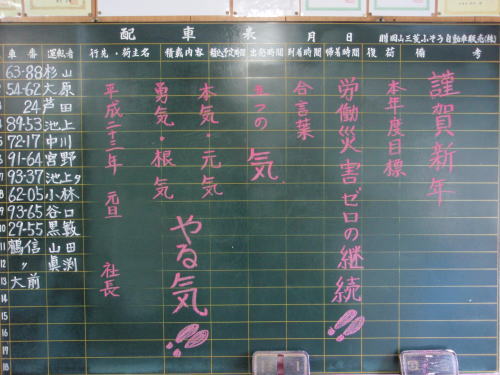 配車表 月 日 贈 岡山三菱ふそう自動車販売(株)
車番 運転者 行先・荷主名 積載内容 積込予定時間 出発時間 到着時間 帰着時間 復荷 備考
1 63-88 杉山
2 54-62 大原
3 24 芦田
4 89-53 池上
5 72-17 中川
6 91-64 宮野
7 93-37 池上タ
8 62-05 小林
9 93-65 谷口
10 29-55 黒藪
11 鶴信 山田
12 〃 眞渕
13 大前
14
15
16
17
18
謹賀新年
本年度目標
労働災害ゼロの継続
合言葉
五つの気
本気・元気
勇気・根気
やる気
平成二十三年 元旦 社長